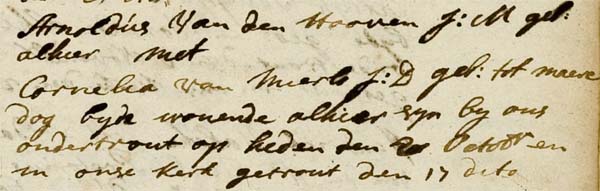 Arnoldus Van den Hooven J: M geb:
alhier met
Cornelia van Mierlo J: D geb: tot maere
dog byde wonende alhier zyn by ons
ondertrout op heden den 2 octobr en
in onse kerk getrout den 17 dito